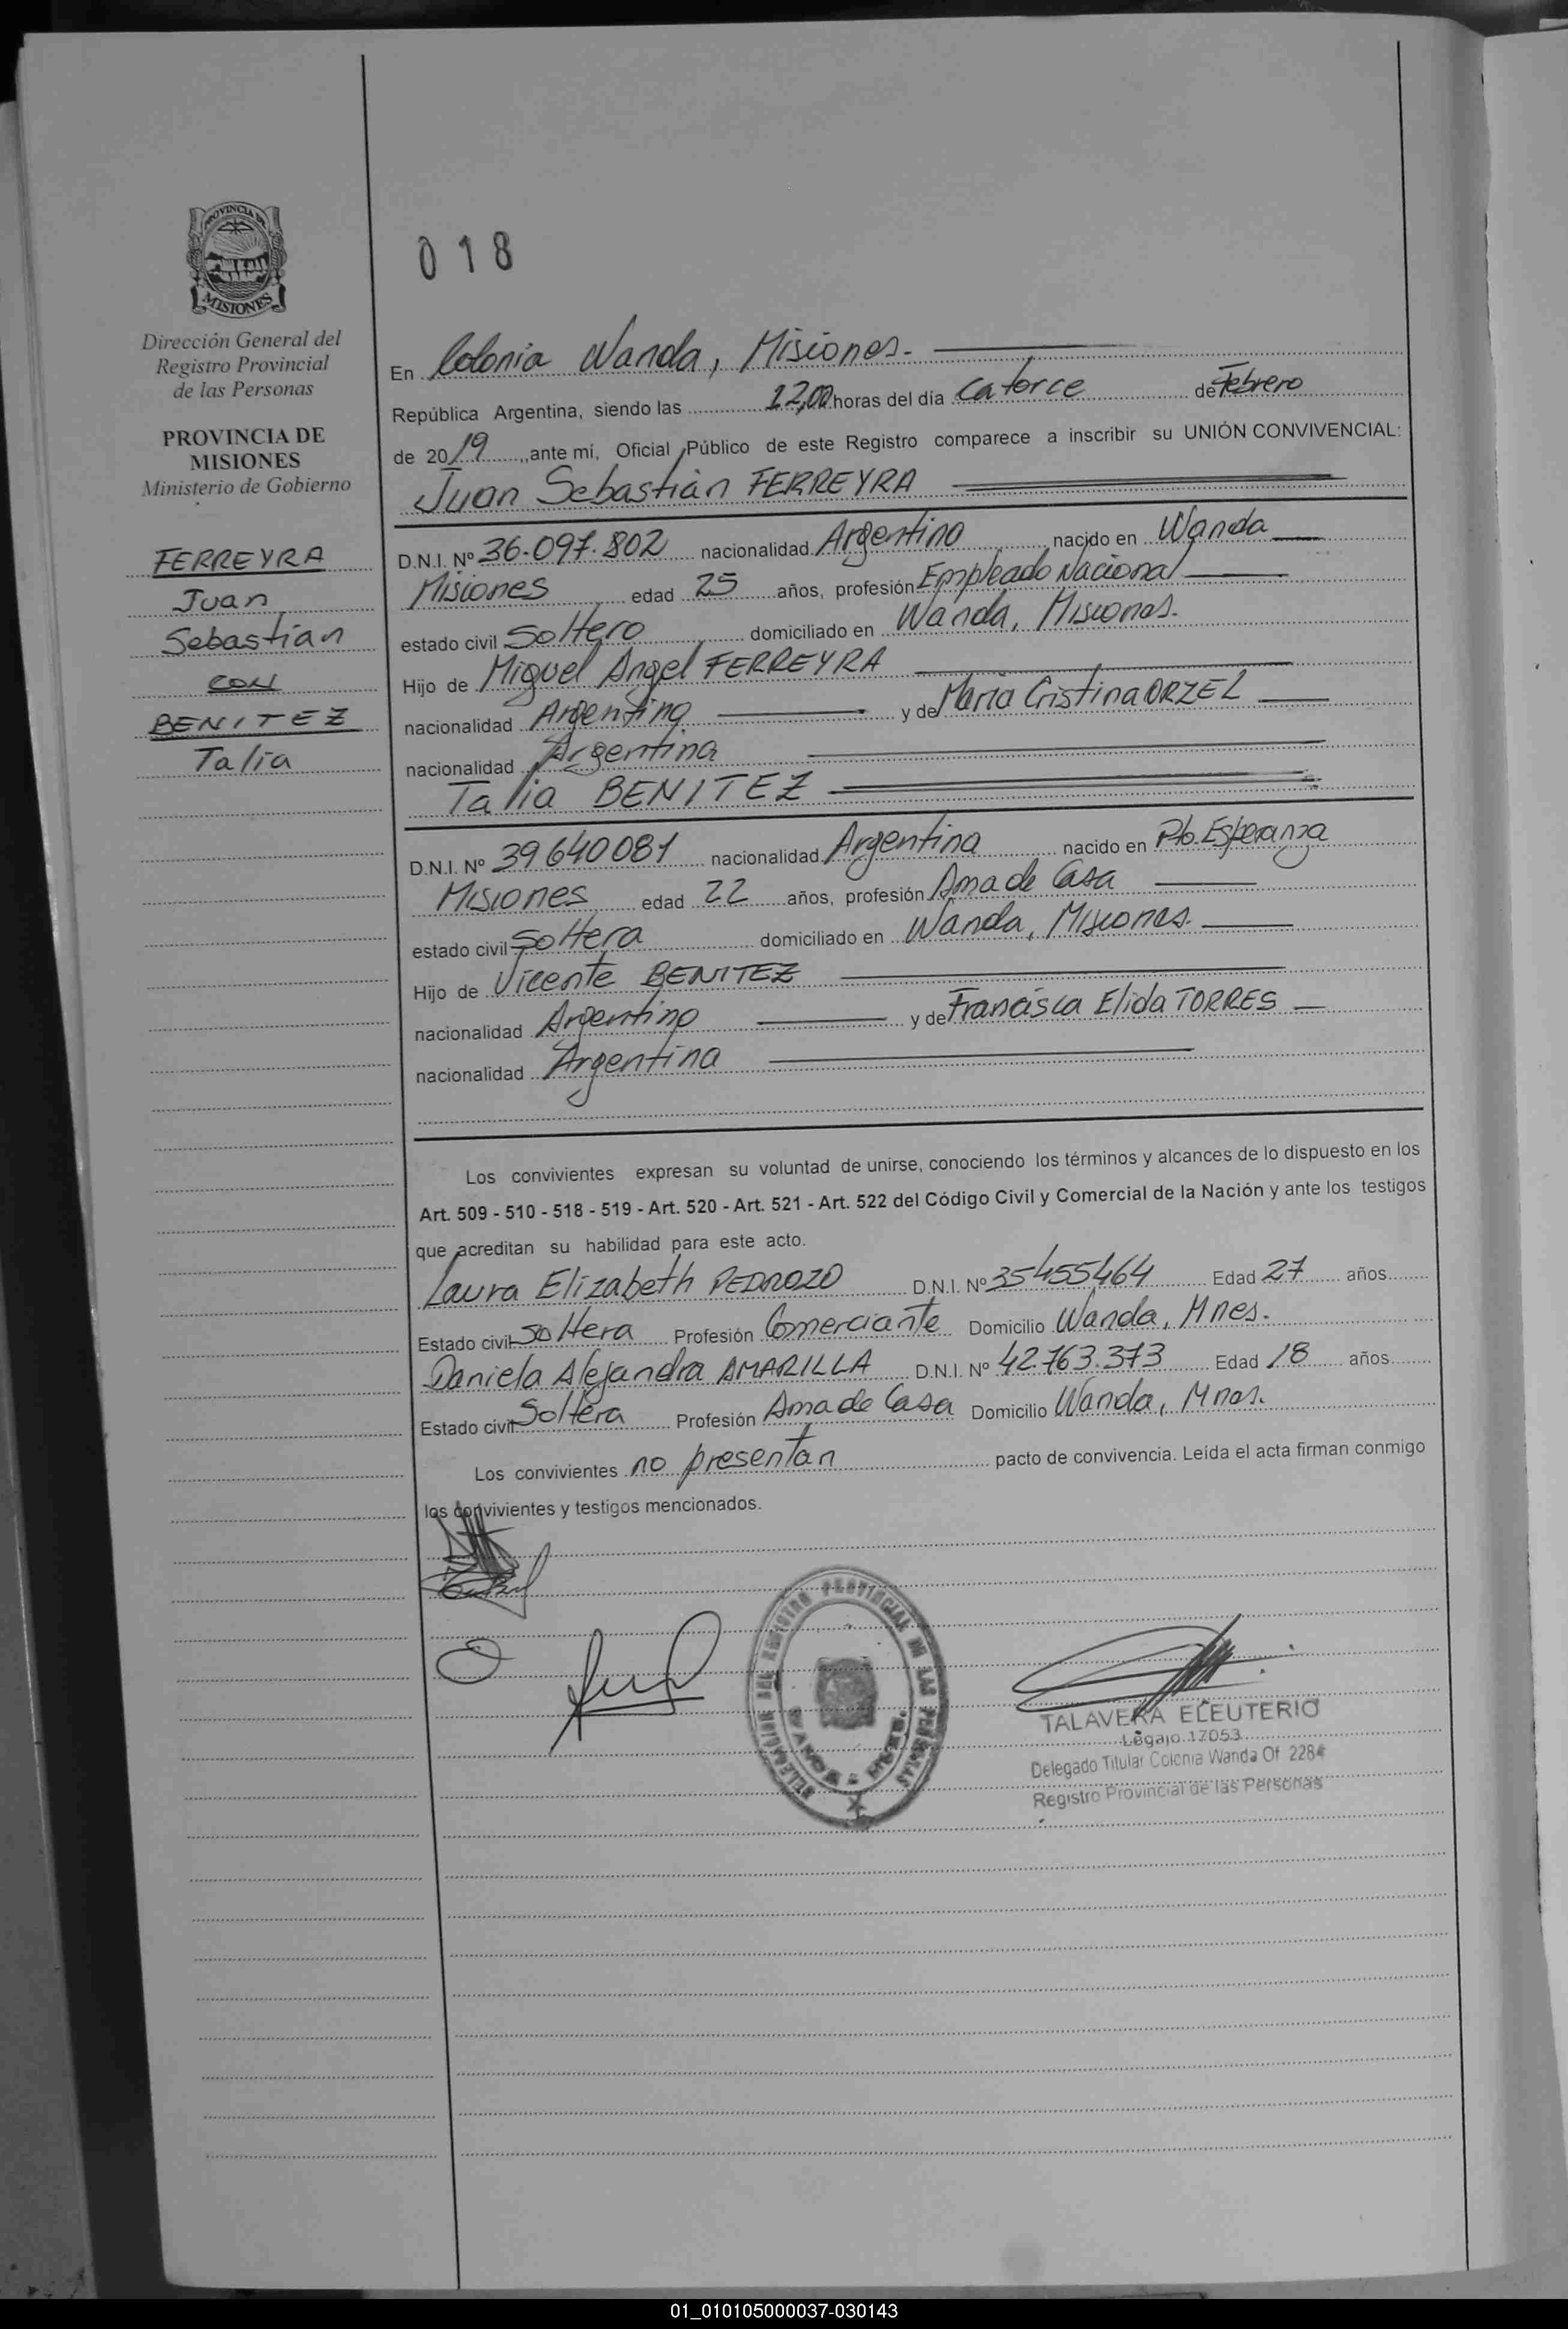 018
PROVINCIA DE
MISIONES
Dirección General del
Registro Provincial
de las Personas
PROVINCIA DE
MISIONES
Ministerio de Gobierno
FERREYRA
Juan
Sebastian
con
BENITEZ
Talia
En Colonia Wanda, Misiones.
República Argentina, siendo las 12,00 horas del día catorce de Febrero
de 2019, ante mi, Oficial Público de este Registro comparece a inscribir su UNIÓN CONVIVENCIAL:
Juan Sebastián FERREYRA
D.N.I. Nº 36.097.802 nacionalidad Argentino nacido en Wanda
Misiones edad 25 años, profesión Empleado Nacional
estado civil Soltero domiciliado en Wanda, Misiones.
Hijo de Miguel Angel FERREYRA
nacionalidad Argentino y de Maria Cristina ORZEL
nacionalidad Argentina
Talia BENITEZ
D.N.I. Nº 39640081 nacionalidad Argentina nacido en Pto. Esperanza
Misiones edad 22 años, profesión Ama de Casa
estado civil Soltera domiciliado en Wanda, Misiones.
Hijo de Vicente BENITEZ
nacionalidad Argentino y de Francisca Elida TORRES
nacionalidad Argentina
Los convivientes expresan su voluntad de unirse, conociendo los términos y alcances de lo dispuesto en los
Art. 509 - 510 - 518 - 519 - Art. 520 - Art. 521 - Art. 522 del Código Civil y Comercial de la Nación y ante los testigos
que acreditan su habilidad para este acto.
Laura Elizabeth PEDROZO D.N.I. Nº 35455464 Edad 27 años
Estado civil Soltera Profesión Comerciante Domicilio Wanda, Mnes.
Daniela Alejandra AMARILLA D.N.I. Nº 42.763.373 Edad 18 años
Estado civil Soltera Profesión Ama de Casa Domicilio Wanda, Mnes.
Los convivientes no presentan pacto de convivencia. Leída el acta firman conmigo
los convivientes y testigos mencionados.
DELEGACION DEL REGISTRO PROVINCIAL DE LAS PERSONAS
WANDA - MNES.
TALAVERA ELEUTERIO
Legajo 17053
Delegado Titular Colonia Wanda Of. 2284
Registro Provincial de las Personas
01_010105000037-030143